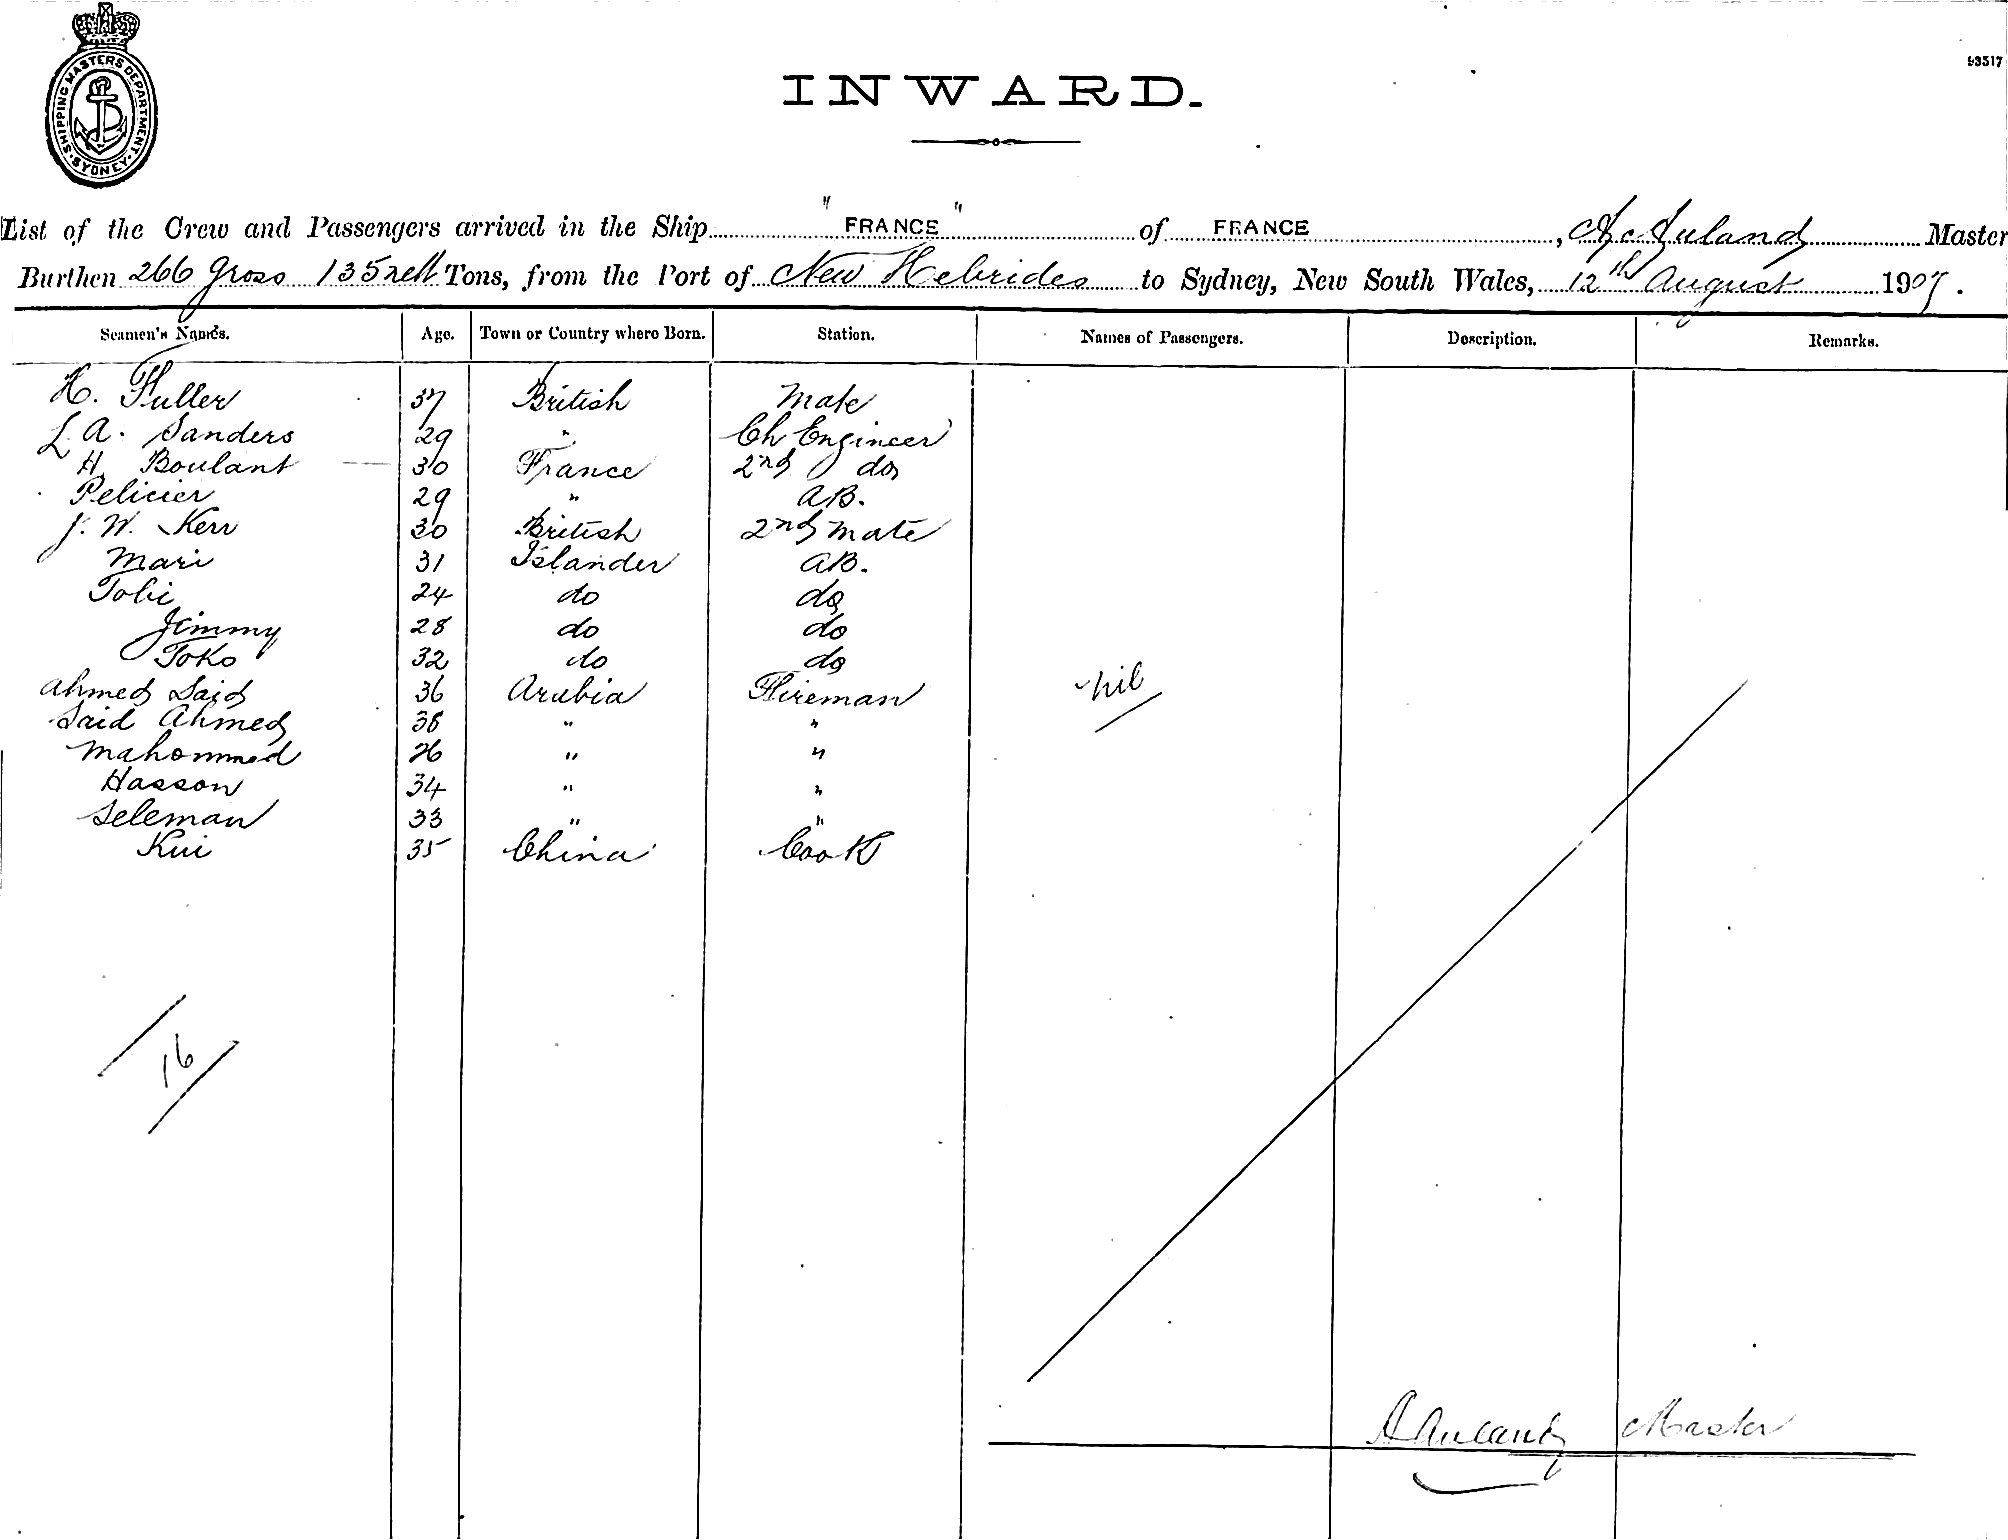 SHIPPING MASTERS DEPARTMENT. SYDNEY
93517
INWARD.
List of the Crew and Passengers arrived in the Ship "FRANCE" of FRANCE, Master
Burthen 266 gross 135 nett Tons, from the Port of New Hebrides to Sydney, New South Wales, 12th August 1907.
Seamen's Names. Age. Town or Country where Born. Station. Names of Passengers. Description. Remarks.
H. Fuller 37 British Mate
L A. Sanders 29 " Ch Engineer
H Boulant 30 France 2nd do
Pelicier 29 " AB.
J. W. Kerr 30 British 2nd Mate
Mari 31 Islander AB.
Tobi 24 do do
Jimmy 28 do do
Toko 32 do do
Ahmed Said 36 Arabia Fireman nil
Said Ahmed 38 " "
Mahommed 26 " "
Hasson 34 " "
Seleman 33 " "
Kui 35 China Cook
16
Master